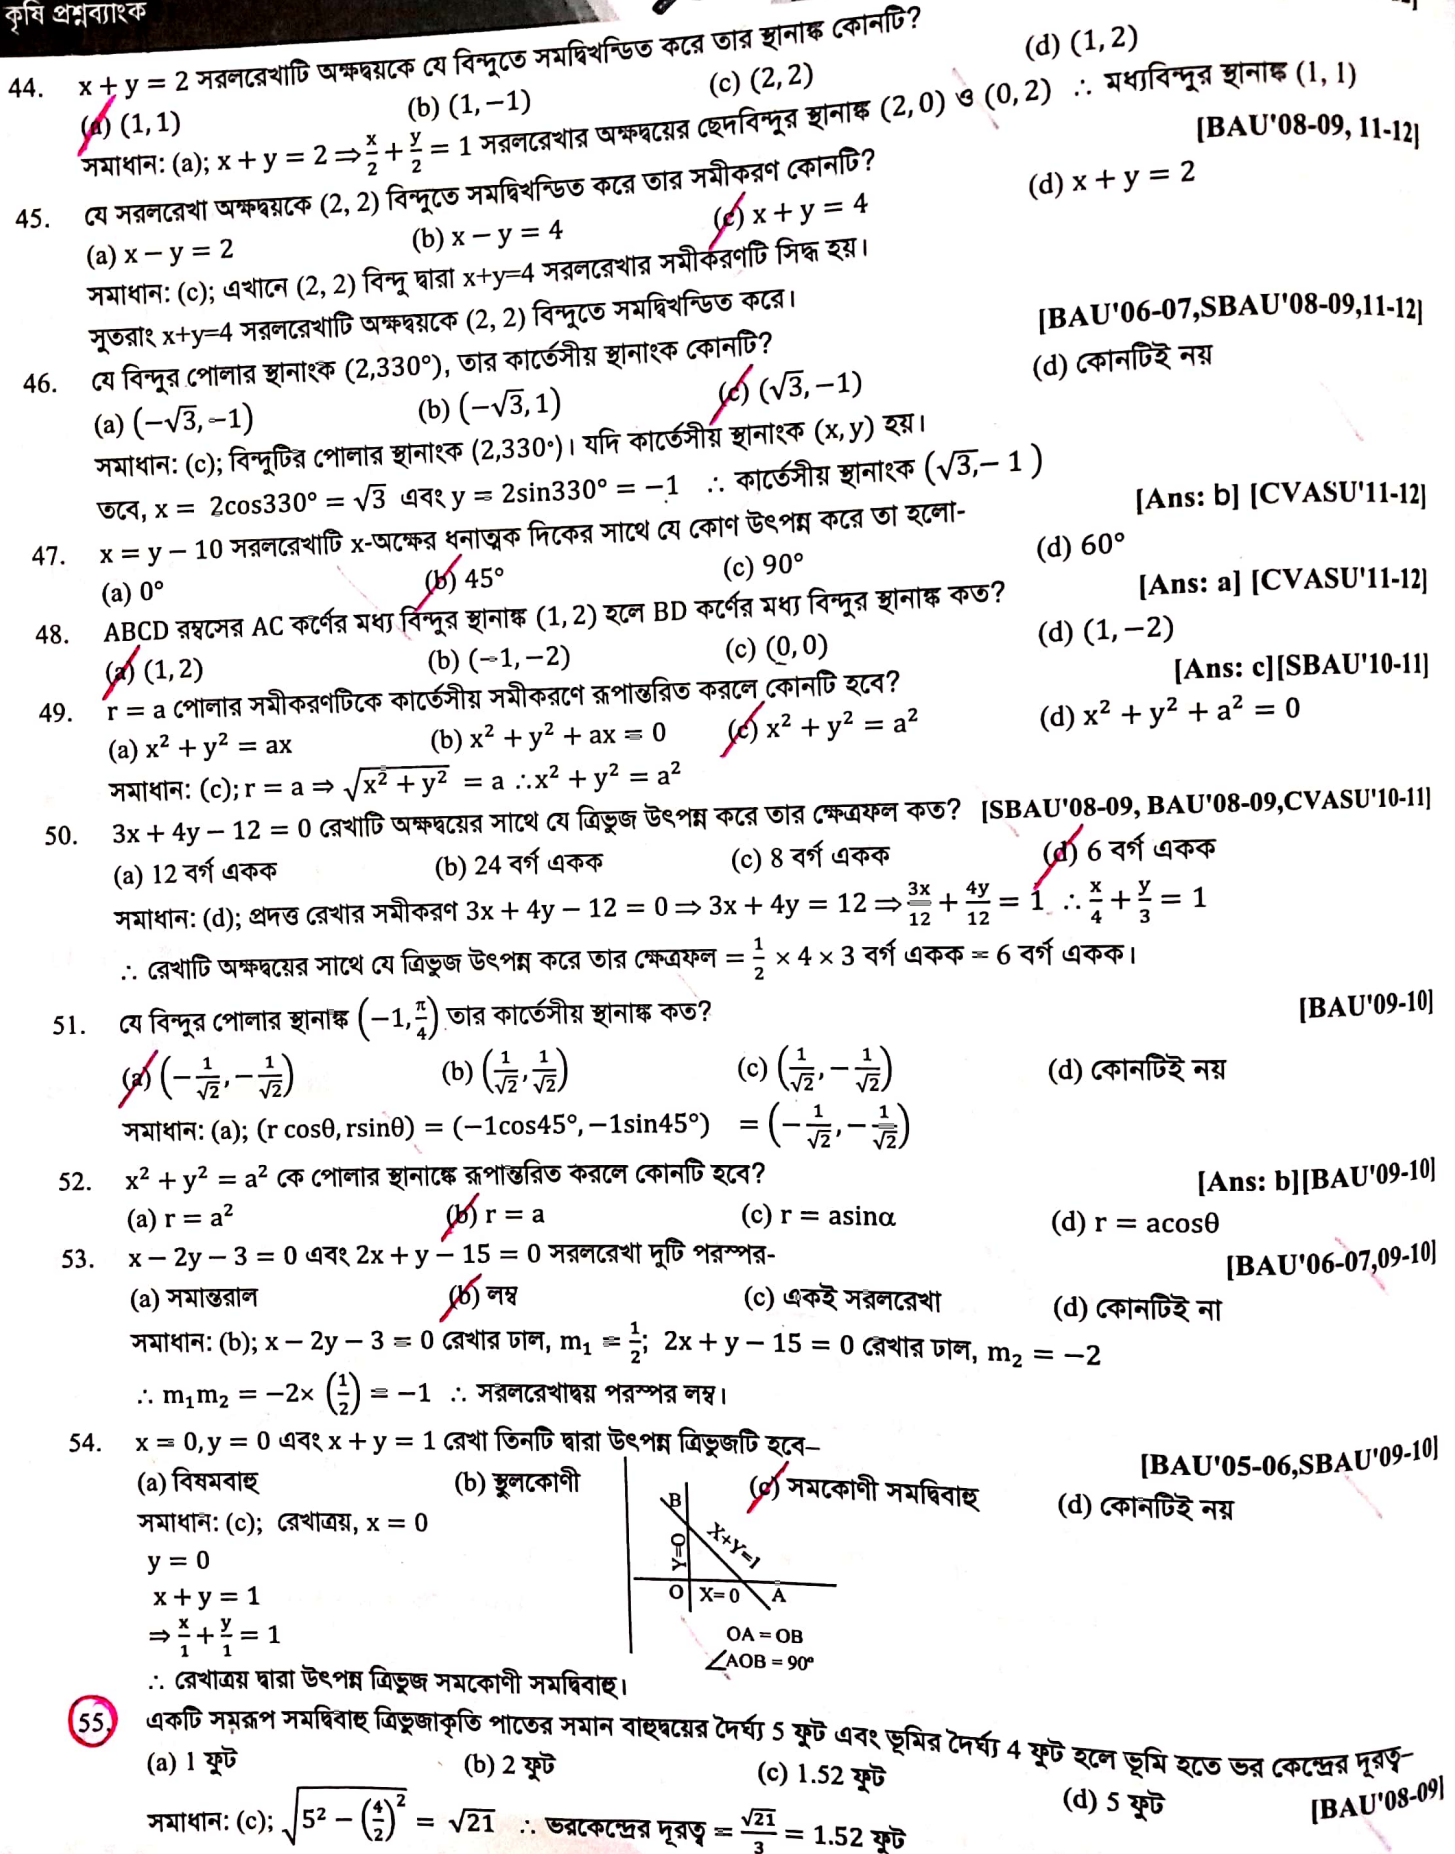 কৃষি প্রশ্নব্যাংক
44. x + y = 2 সরলরেখাটি অক্ষদ্বয়কে যে বিন্দুতে সমদ্বিখন্ডিত করে তার স্থানাঙ্ক কোনটি?
(a) (1, 1) (b) (1, −1) (c) (2, 2) (d) (1, 2)
সমাধান: (a); x + y = 2 ⇒ x/2 + y/2 = 1 সরলরেখার অক্ষদ্বয়ের ছেদবিন্দুর স্থানাঙ্ক (2, 0) ও (0, 2) ∴ মধ্যবিন্দুর স্থানাঙ্ক (1, 1)
45. যে সরলরেখা অক্ষদ্বয়কে (2, 2) বিন্দুতে সমদ্বিখন্ডিত করে তার সমীকরণ কোনটি? [BAU'08-09, 11-12]
(a) x − y = 2 (b) x − y = 4 (c) x + y = 4 (d) x + y = 2
সমাধান: (c); এখানে (2, 2) বিন্দু দ্বারা x+y=4 সরলরেখার সমীকরণটি সিদ্ধ হয়।
সুতরাং x+y=4 সরলরেখাটি অক্ষদ্বয়কে (2, 2) বিন্দুতে সমদ্বিখন্ডিত করে।
46. যে বিন্দুর পোলার স্থানাংক (2,330°), তার কার্তেসীয় স্থানাংক কোনটি? [BAU'06-07,SBAU'08-09,11-12]
(a) (−√3, −1) (b) (−√3, 1) (c) (√3, −1) (d) কোনটিই নয়
সমাধান: (c); বিন্দুটির পোলার স্থানাংক (2,330°)। যদি কার্তেসীয় স্থানাংক (x, y) হয়।
তবে, x = 2cos330° = √3 এবং y = 2sin330° = −1 ∴ কার্তেসীয় স্থানাংক (√3,− 1 )
47. x = y − 10 সরলরেখাটি x-অক্ষের ধনাত্মক দিকের সাথে যে কোণ উৎপন্ন করে তা হলো- [Ans: b] [CVASU'11-12]
(a) 0° (b) 45° (c) 90° (d) 60°
48. ABCD রম্বসের AC কর্ণের মধ্য বিন্দুর স্থানাঙ্ক (1, 2) হলে BD কর্ণের মধ্য বিন্দুর স্থানাঙ্ক কত? [Ans: a] [CVASU'11-12]
(a) (1, 2) (b) (−1, −2) (c) (0, 0) (d) (1, −2)
49. r = a পোলার সমীকরণটিকে কার্তেসীয় সমীকরণে রূপান্তরিত করলে কোনটি হবে? [Ans: c][SBAU'10-11]
(a) x² + y² = ax (b) x² + y² + ax = 0 (c) x² + y² = a² (d) x² + y² + a² = 0
সমাধান: (c); r = a ⇒ √(x² + y²) = a ∴x² + y² = a²
50. 3x + 4y − 12 = 0 রেখাটি অক্ষদ্বয়ের সাথে যে ত্রিভুজ উৎপন্ন করে তার ক্ষেত্রফল কত? [SBAU'08-09, BAU'08-09,CVASU'10-11]
(a) 12 বর্গ একক (b) 24 বর্গ একক (c) 8 বর্গ একক (d) 6 বর্গ একক
সমাধান: (d); প্রদত্ত রেখার সমীকরণ 3x + 4y − 12 = 0 ⇒ 3x + 4y = 12 ⇒ 3x/12 + 4y/12 = 1 ∴ x/4 + y/3 = 1
∴ রেখাটি অক্ষদ্বয়ের সাথে যে ত্রিভুজ উৎপন্ন করে তার ক্ষেত্রফল = 1/2 × 4 × 3 বর্গ একক = 6 বর্গ একক।
51. যে বিন্দুর পোলার স্থানাঙ্ক (−1, π/4) তার কার্তেসীয় স্থানাঙ্ক কত? [BAU'09-10]
(a) (−1/√2, −1/√2) (b) (1/√2, 1/√2) (c) (1/√2, −1/√2) (d) কোনটিই নয়
সমাধান: (a); (r cosθ, rsinθ) = (−1cos45°, −1sin45°) = (−1/√2, −1/√2)
52. x² + y² = a² কে পোলার স্থানাঙ্কে রূপান্তরিত করলে কোনটি হবে? [Ans: b][BAU'09-10]
(a) r = a² (b) r = a (c) r = asinα (d) r = acosθ
53. x − 2y − 3 = 0 এবং 2x + y − 15 = 0 সরলরেখা দুটি পরস্পর- [BAU'06-07,09-10]
(a) সমান্তরাল (b) লম্ব (c) একই সরলরেখা (d) কোনটিই না
সমাধান: (b); x − 2y − 3 = 0 রেখার ঢাল, m₁ = 1/2; 2x + y − 15 = 0 রেখার ঢাল, m₂ = −2
∴ m₁m₂ = −2× (1/2) = −1 ∴ সরলরেখাদ্বয় পরস্পর লম্ব।
54. x = 0, y = 0 এবং x + y = 1 রেখা তিনটি দ্বারা উৎপন্ন ত্রিভুজটি হবে– [BAU'05-06,SBAU'09-10]
(a) বিষমবাহু (b) স্থূলকোণী (c) সমকোণী সমদ্বিবাহু (d) কোনটিই নয়
সমাধান: (c); রেখাত্রয়, x = 0
y = 0
x + y = 1
⇒ x/1 + y/1 = 1
B
X+Y=1
Y=O
O X=0 A
OA = OB
∠AOB = 90°
∴ রেখাত্রয় দ্বারা উৎপন্ন ত্রিভুজ সমকোণী সমদ্বিবাহু।
55. একটি সমরূপ সমদ্বিবাহু ত্রিভুজাকৃতি পাতের সমান বাহুদ্বয়ের দৈর্ঘ্য 5 ফুট এবং ভূমির দৈর্ঘ্য 4 ফুট হলে ভূমি হতে ভর কেন্দ্রের দূরত্ব–
(a) 1 ফুট (b) 2 ফুট (c) 1.52 ফুট (d) 5 ফুট [BAU'08-09]
সমাধান: (c); √(5² − (4/2)²) = √21 ∴ ভরকেন্দ্রের দূরত্ব = √21/3 = 1.52 ফুট